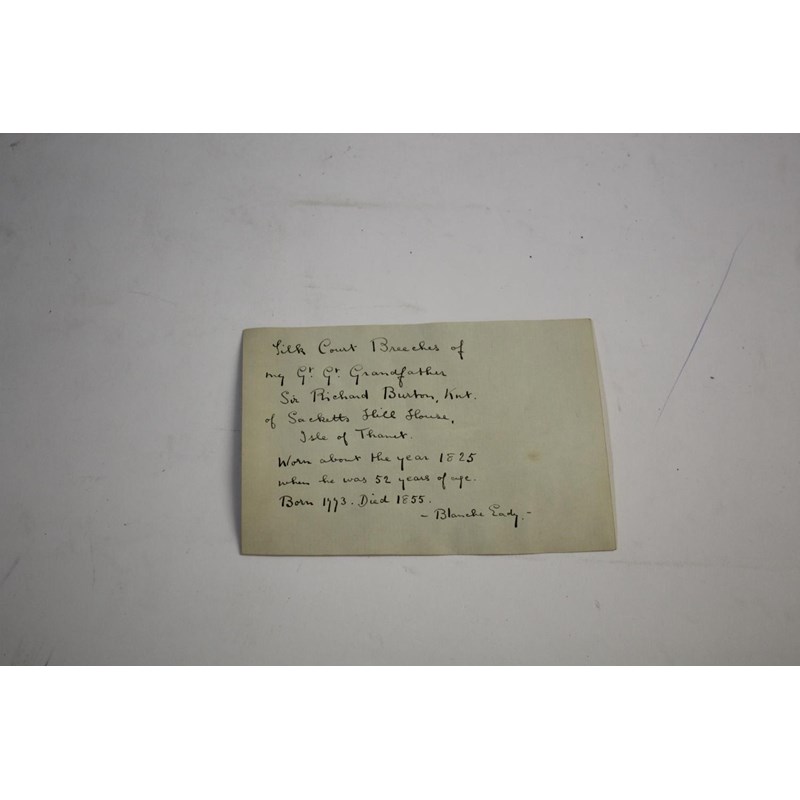 Silk Court Breeches of
my Gt. Gt. Grandfather
Sir Richard Burton, Knt.
of Sacketts Hill House,
Isle of Thanet.
Worn about the year 1825
when he was 52 years of age.
Born 1773. Died 1855.
- Blanche Eady. -